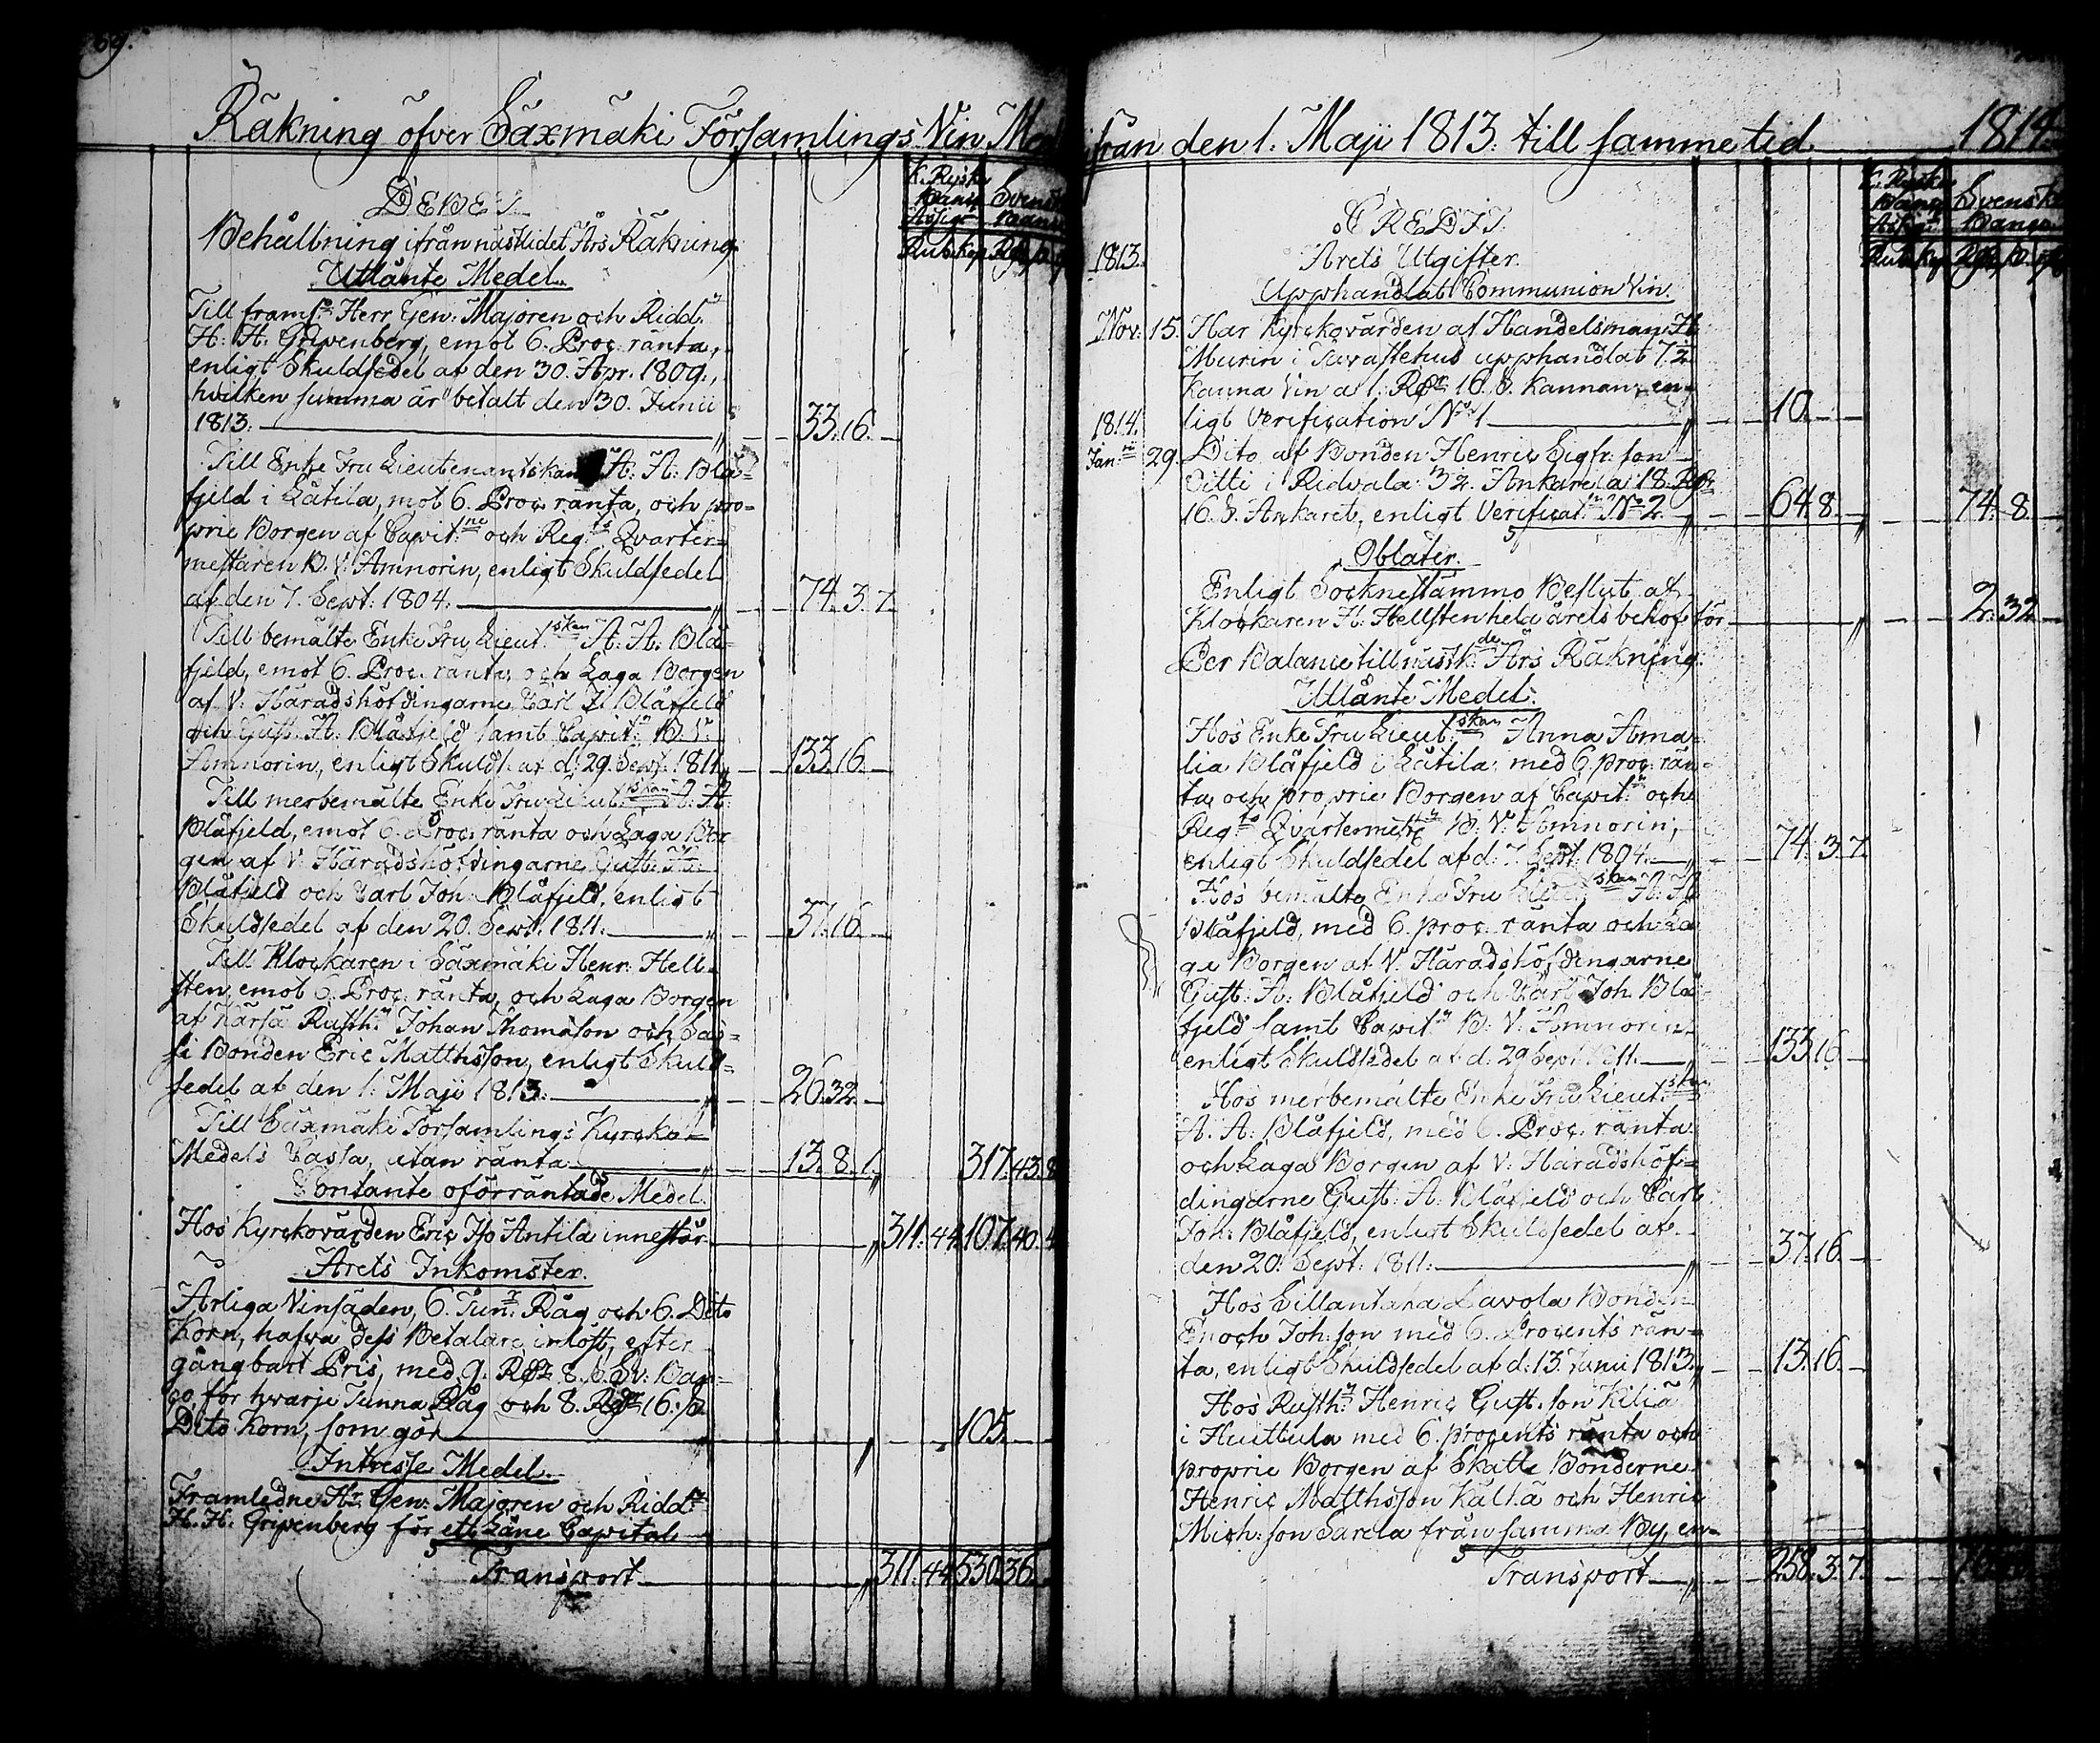 69.
Räkning öfver Säxmäki Församlings Vin Med
DEBET.
R. Rysk. Banco Assign: Svensk Banco
Rub. kop. Rd. ß. rst.
Behållning ifrån nästlidet Års Räkning
Utlånte Medel.
Till framl:ne Herr Gen: Majoren och Ridd:n
H: H: Gripenberg, emot 6. Proc: ränta,
enligt Skuldsedel af den 30. Apr. 1809.,
hvilken summa är betalt den 30. Junii
1813. 33. 16. —
Till Enke Fru Lieutenantskan A: A: Blå=
fjeld i Låtila, mot 6. Proc: ränta, och pro=
prie Borgen af Capit:ne och Reg:ts Qvarter=
mestaren B. V. Amnorin, enligt Skuldsedel
af den 7. Sept: 1804. 74. 3. 7.
Till bemälte Enke Fru Lieut:skan A: A: Blå=
fjeld, emot 6. Proc. ränta, och Laga Borgen
af V: Häradshöfdingarne Carl J: Blåfjeld
och Gust: A: Blåfjeld samt Capit:n B: V:
Amnorin, enligt Skulds. af d: 29. Sept. 1811. 133. 16. —
Till merbemälte Enke Fru Lieut:skan A: A:
Blåfjeld, emot 6. Proc: ränta och Laga Bor=
gen af V: Häradshöfdingarne Gust: A:
Blåfjeld och Carl Joh: Blåfjeld, enligt
Skuldsedel af den 20. Sept. 1811. 37. 16. —
Till Klockaren i Säxmäki Henr: Hell=
sten, emot 6. Proc: ränta, och Laga Borgen
af Kärsä Rusth:n Johan Thomasson och Sas=
si Bonden Eric Matthsson, enligt Skuld=
sedel af den 1. Maji 1813. 26. 32. —
Till Säxmäki Församlings Kyrcko=
Medels Cassa, utan ränta 13. 8. 1. 317. 43. 8
Contante oförräntade Medel.
Hos Kyrckovärden Eric Js: Antila innestår 311. 44. 107. 40. 4
Årets Inkomster.
Årliga Vinsäden, 6. Tun:r Råg och 6. Dito
Korn, hafva dess Betalare inlöst, efter
gångbart Pris, med 9. Rdr 8. ß. Sv: Ban=
co för hvarje Tunna Råg och 8. Rdr 16. ß.
Dito Korn, som gör 105. —
Intresse Medel.
Framledne Hr Gen: Majoren och Ridd:n
H. H. Gripenberg för ett Låne Capital
Transport 311. 44. 530. 36. —
ifrån den 1. Maji 1813. till samme tid 1814.
CREDIT.
R. Rysk. Banco Assig: Svensk Banco
Rub. kop. Rd. ß. rst.
1813. Årets Utgifter.
Upphandlat Communion Vin.
Nov: 15. Har Kyrckovärden af Handelsman H:
Murin i Tavastehus upphandlat 7½
kanna Vin a 1. Rdr 16. ß. kannan, en=
ligt Verification N:o 1 10. — —
1814.
Jan:rii 29. Dito af Bonden Henric Sigfr: son
Oitti i Ridvala 3½. Ankare a 18. Rdr
16. ß. Ankaret, enligt Verificat:n N:o 2. 64. 8. — 74. 8. —
Oblater.
Enligt Socknestämmo Beslut af
Klockaren H: Hellsten hela årets behof för 2. 32. —
Per Balance till nästk:de Års Räkning.
Utlånte Medel.
Hos Enke Fru Lieut:skan Anna Ama=
lia Blåfjeld i Låtila, med 6. proc: rän=
ta och proprie Borgen af Capit:n och
Reg:ts Qvartermest:n B. V. Amnorin,
enligt Skuldsedel af d: 7. Sept: 1804. 74. 3. 7.
Hos bemälte Enke Fru Lieut:skan A: A:
Blåfjeld, med 6. proc: ränta och La=
ga Borgen af V: Häradshöfdingarne
Gust: A: Blåfjeld och Carl Joh. Blå=
fjeld samt Capit:n B: V: Amnorin
enligt Skuldsedel af d: 29 Sept. 1811. 133. 16. —
Hos merbemälte Enke Fru Lieut:skan
A. A: Blåfjeld, med 6. Proc. ränta
och Laga Borgen af V: Häradshöf=
dingarne Gust: A: Blåfjeld och Carl
Joh: Blåfjeld, enligt Skuldsedel af
den 20. Sept: 1811. 37. 16. —
Hos Sillantaka Lavola Bonden
Enoch Joh:son med 6. Procents rän=
ta, enligt Skuldsedel af d: 13. Junii 1813. 13. 16. —
Hos Rusth:n Henric Gust. son Kiliä
i Huittula med 6. procents ränta och
proprie Borgen af Skatte Bönderne
Henric Matthsson Kältä och Henric
Mich: son Sarela från samma By, en=
Transport 258. 3. 7.